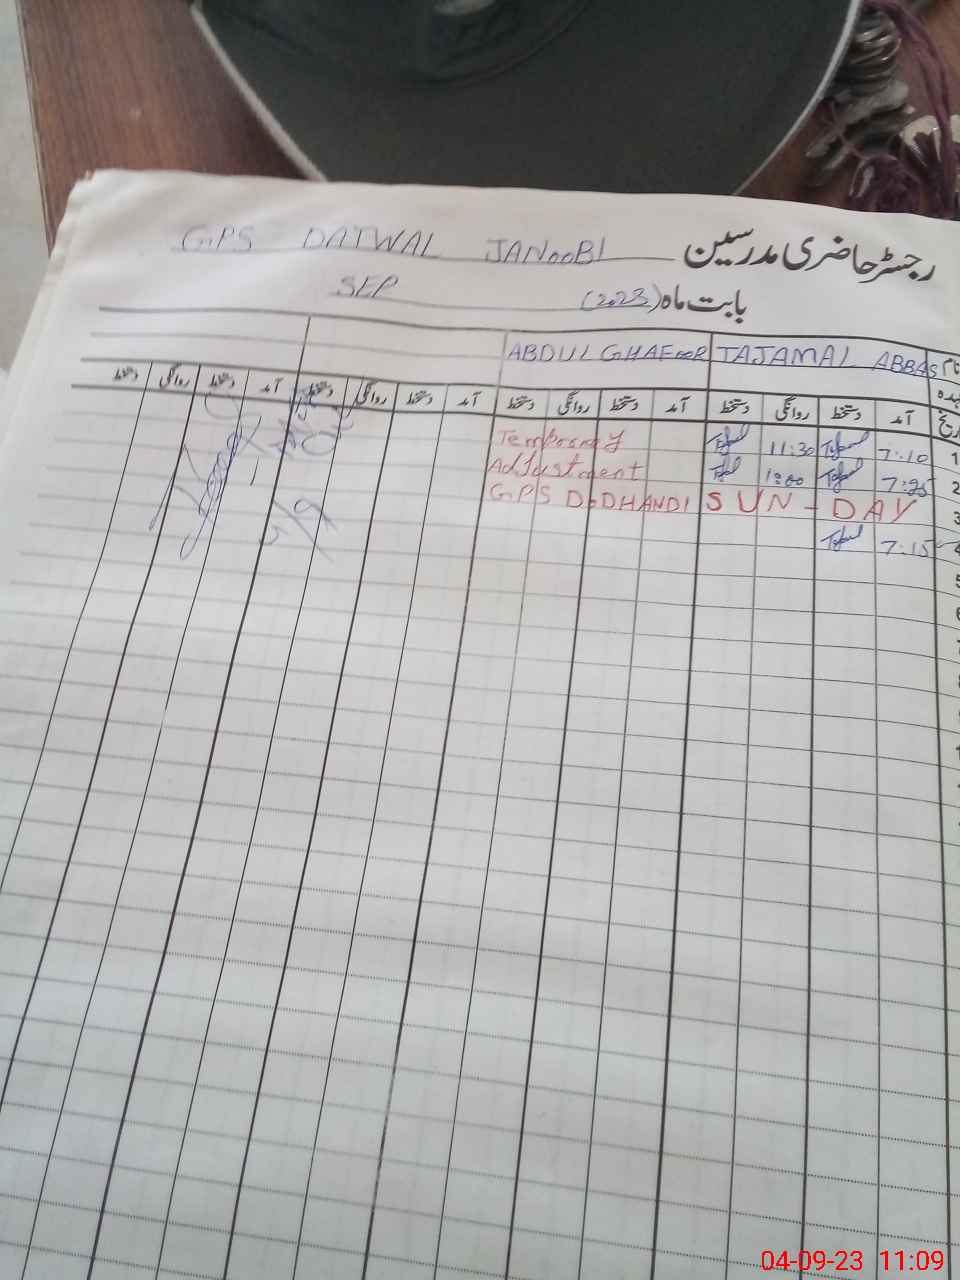 GPS DATWAL JANOOBI رجسٹر حاضری مدرسین
SEP (2023) بابت ماہ
نام TAJAMAL ABBAS ABDUL GHAFOOR
عہدہ
تاریخ آمد دستخط روانگی دستخط آمد دستخط روانگی دستخط آمد دستخط روانگی دستخط آمد دستخط روانگی دستخط
1 7:10 11:30 Temporary
2 7:25 Adjustment
3 SUN - DAY GPS DODHANDI
4 7:15
5
6
7
8
04-09-23 11:09